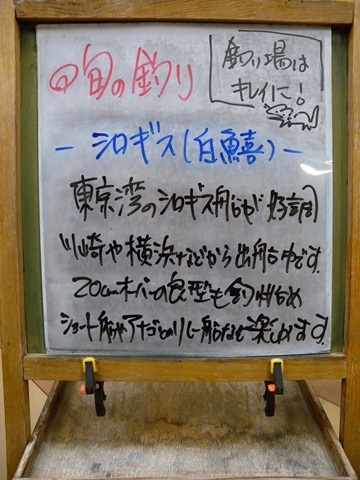 旬の釣り
釣り場は
キレイに!
- シロギス(白鱚) -
東京湾のシロギス船が好調
川崎や横浜などから出船中です.
20cmオーバーの良型も釣れ
ショート船やアナゴとのリレー船なども楽しめます.